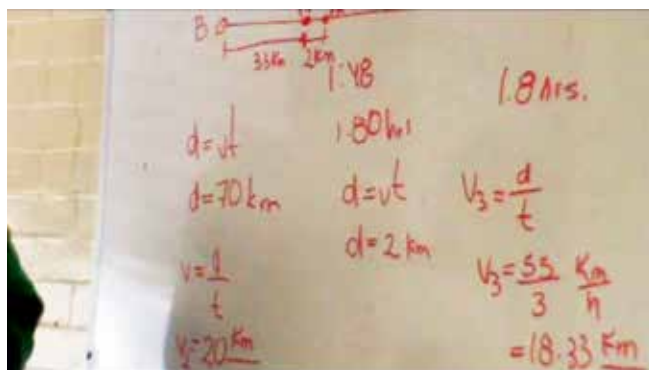 B
33Km 2Km
1:48
1.8 hrs.
d=vt
d=70km
v=d/t
=20 Km
1.80 hrs
d=vt
d=2 km
V₃=d/t
V₃=55/3 Km/h
=18.33 Km